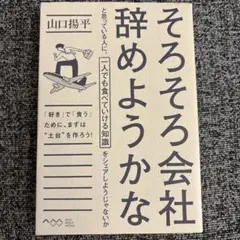 山口揚平
そろそろ会社
辞めようかな
と思っている人に、一人でも食べていける知識をシェアしようじゃないか
「好き」で「食う」
ために、まずは
“土台”を作ろう!